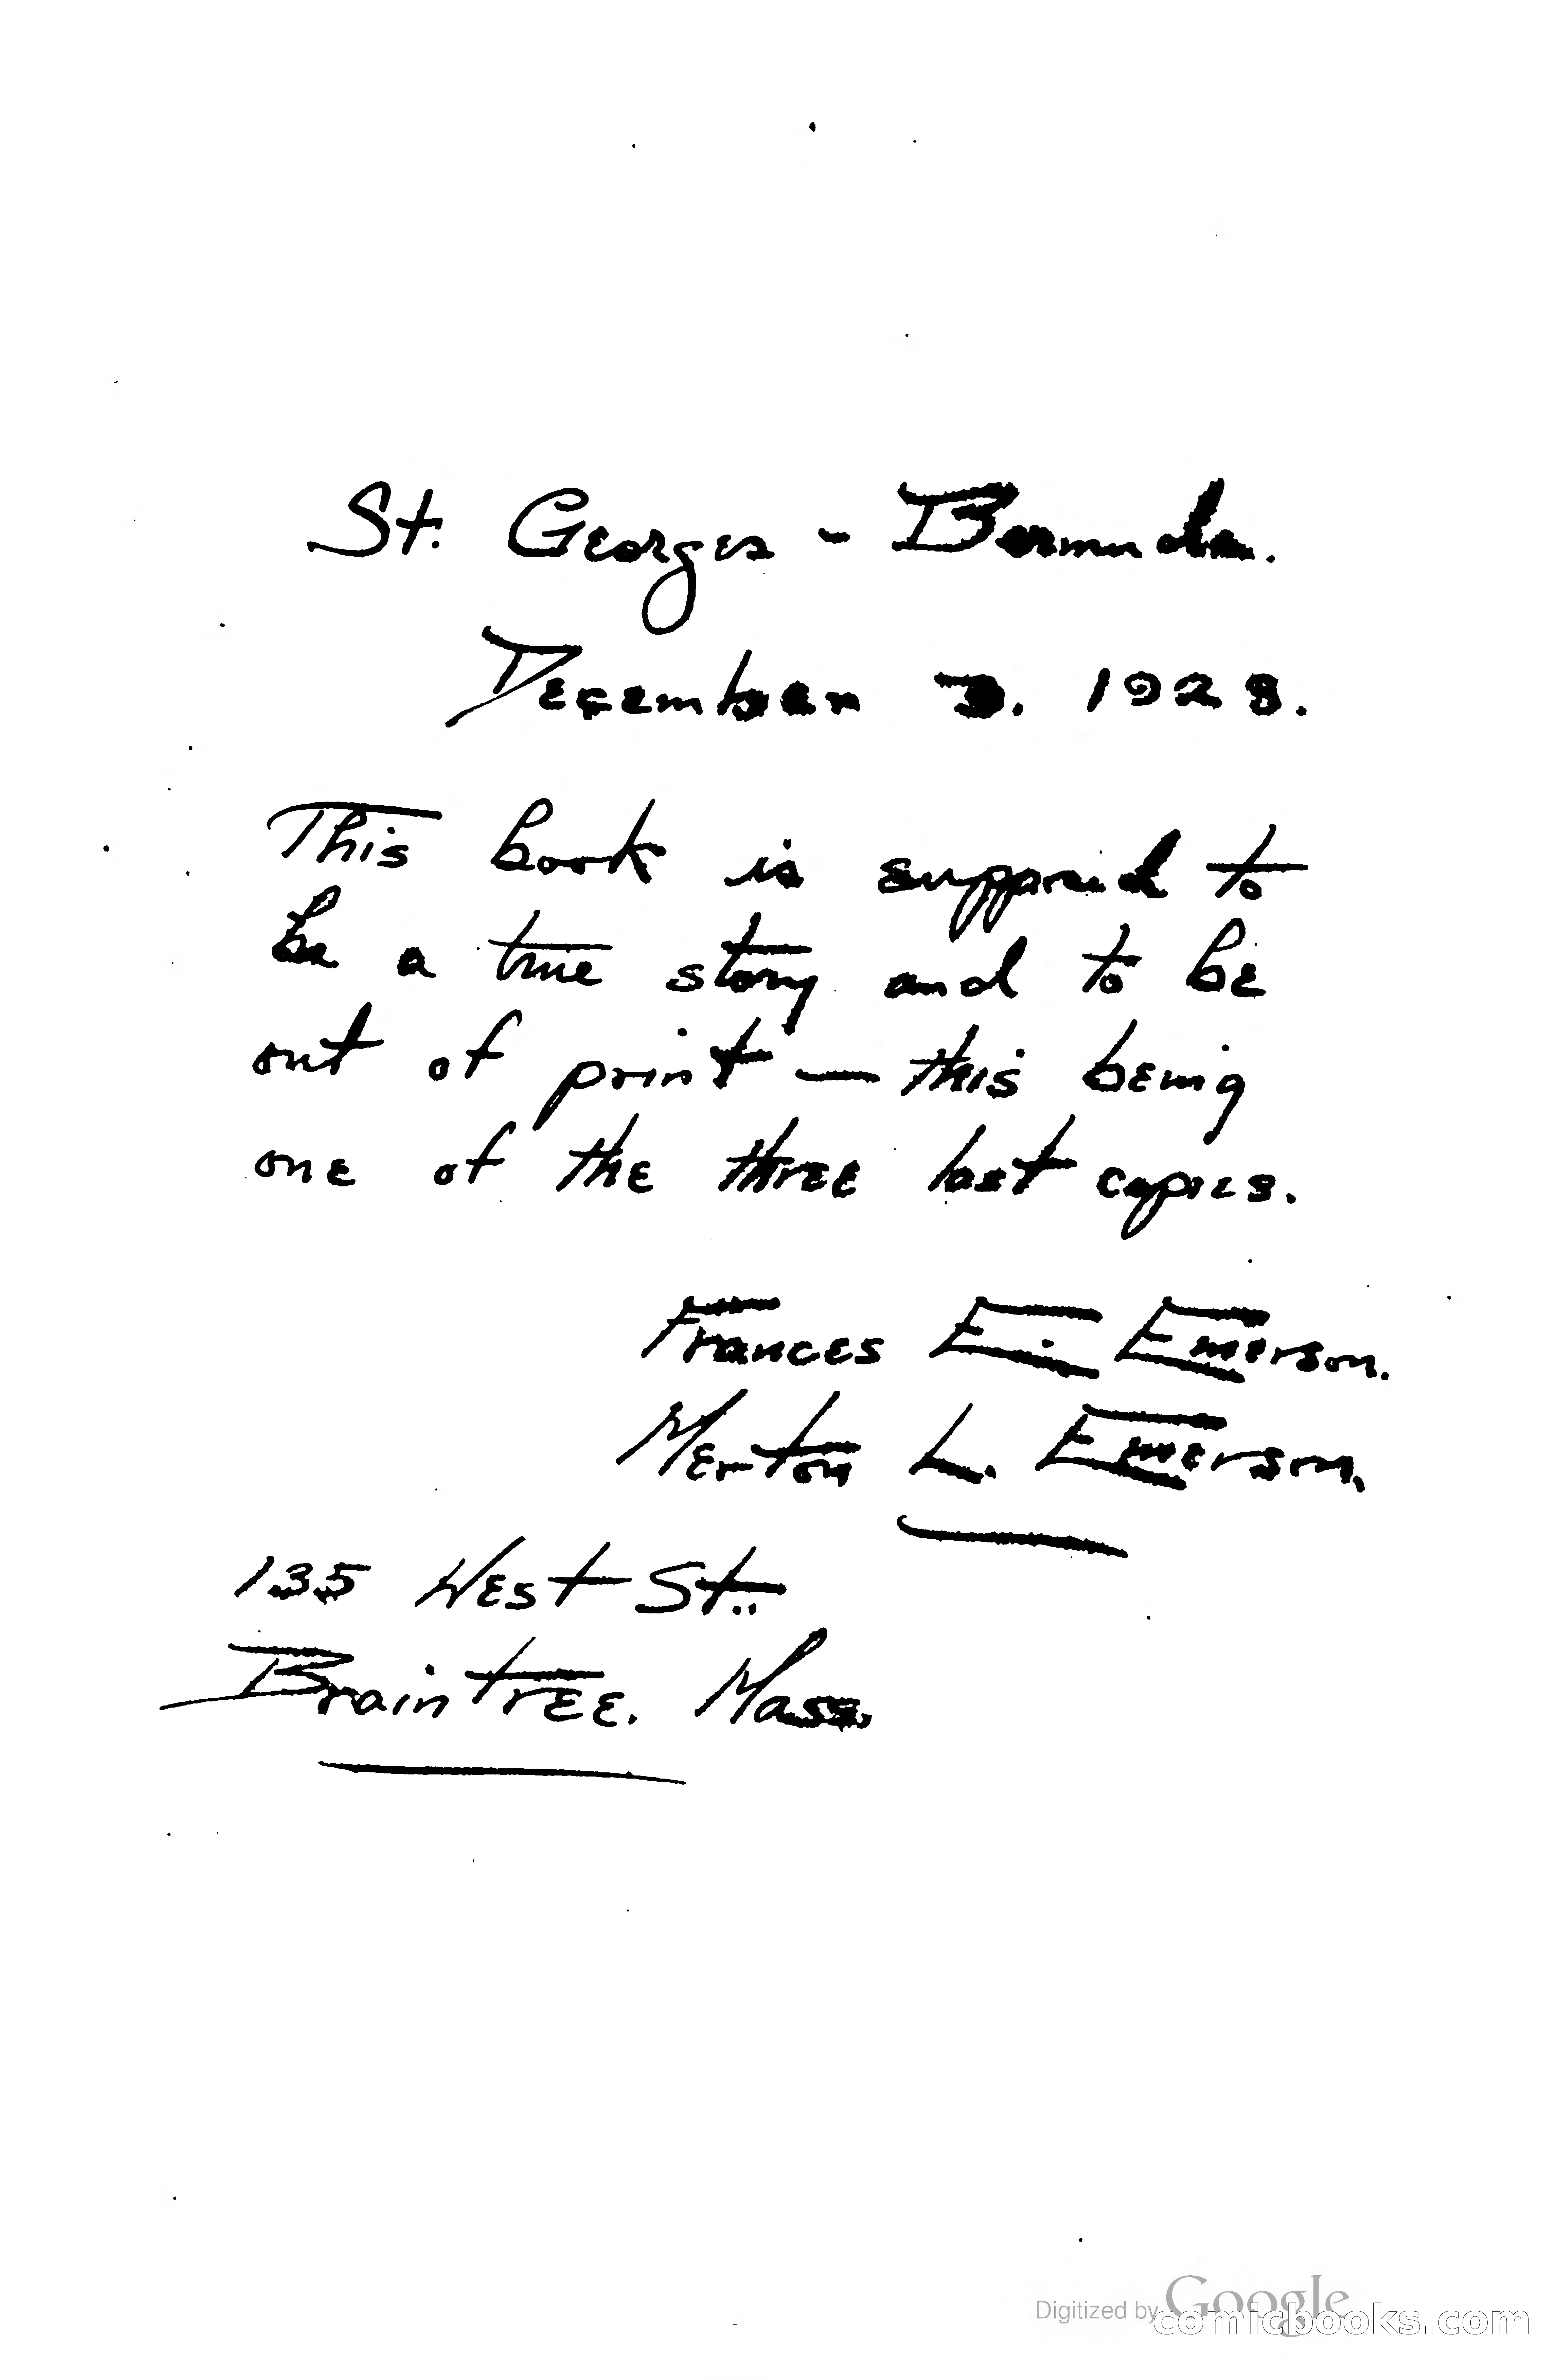 St. Georges - Bermuda.
December 3. 1928.
This book is supposed to
be a true story and to be
out of print — this being
one of the three last copies.
Frances E. Emerson.
Merton L. Emerson.
135 West St.
Braintree. Mass.
Digitized by Google
comicbooks.com